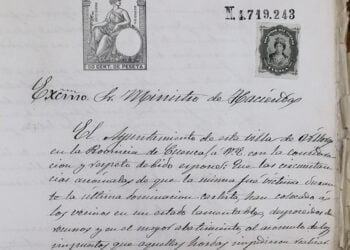 N.1.719.243
50 CENT. DE PESETA
Excmo. Sr. Ministro de Hacienda
El Ayuntamiento de esta villa de
en la Provincia de Cuenca, a V.E. con la considera-
cion y respeto debido expone: Que las circunstan-
cias anómalas de que la misma fue víctima duran-
te la última dominacion carlista, han colocado á
los vecinos en un estado lamentable, desprovistos de
recursos y en el mayor abatimiento al acumulo de los
impuestos que aquellas hordas impidieron